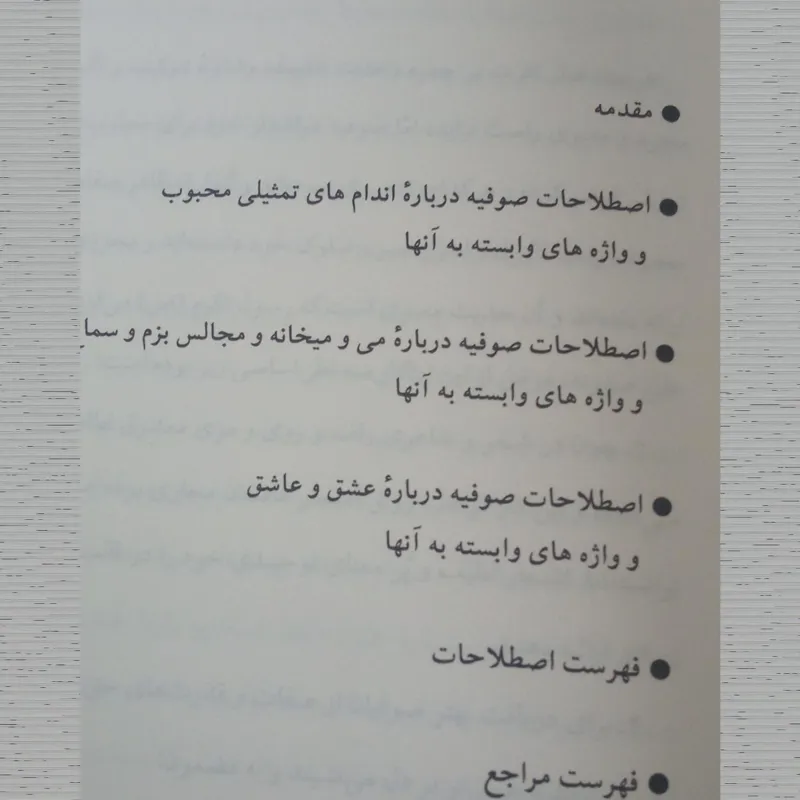 ● مقدمه
● اصطلاحات صوفیه دربارهٔ اندام های تمثیلی محبوب
و واژه های وابسته به آنها
● اصطلاحات صوفیه دربارهٔ می و میخانه و مجالس بزم و سماع
و واژه های وابسته به آنها
● اصطلاحات صوفیه دربارهٔ عشق و عاشق
و واژه های وابسته به آنها
● فهرست اصطلاحات
● فهرست مراجع